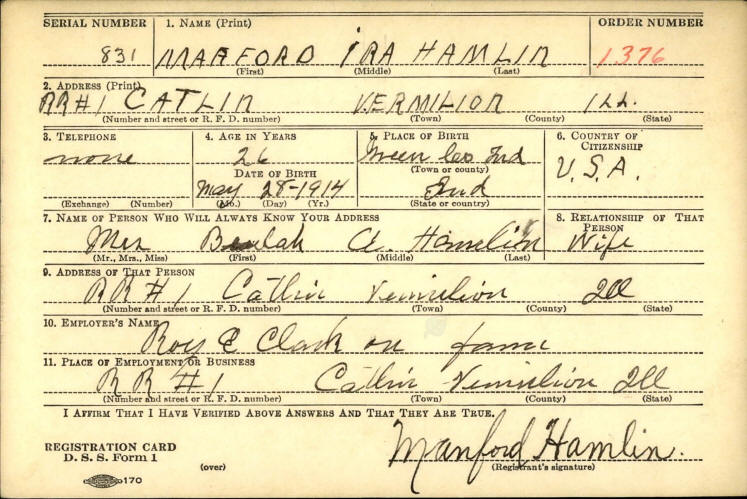 SERIAL NUMBER 1. NAME (Print) ORDER NUMBER
831 MANFORD IRA HAMLIN 1376
(First) (Middle) (Last)
2. ADDRESS (Print)
RR#1 CATLIN VERMILION ILL.
(Number and street or R. F. D. number) (Town) (County) (State)
3. TELEPHONE 4. AGE IN YEARS 5. PLACE OF BIRTH 6. COUNTRY OF CITIZENSHIP
none 26 Green Co Ind U.S.A.
DATE OF BIRTH (Town or county)
May 28-1914 Ind
(Exchange) (Number) (Mo.) (Day) (Yr.) (State or country)
7. NAME OF PERSON WHO WILL ALWAYS KNOW YOUR ADDRESS 8. RELATIONSHIP OF THAT PERSON
Mrs Beulah A. Hamlin Wife
(Mr., Mrs., Miss) (First) (Middle) (Last)
9. ADDRESS OF THAT PERSON
RR #1 Catlin Vermilion Ill
(Number and street or R. F. D. number) (Town) (County) (State)
10. EMPLOYER'S NAME
Roy E Clark on farm
11. PLACE OF EMPLOYMENT OR BUSINESS
RR #1 Catlin Vermilion Ill
(Number and street or R. F. D. number) (Town) (County) (State)
I AFFIRM THAT I HAVE VERIFIED ABOVE ANSWERS AND THAT THEY ARE TRUE.
Manford Hamlin.
REGISTRATION CARD
D. S. S. Form 1 (over) (Registrant's signature)
170